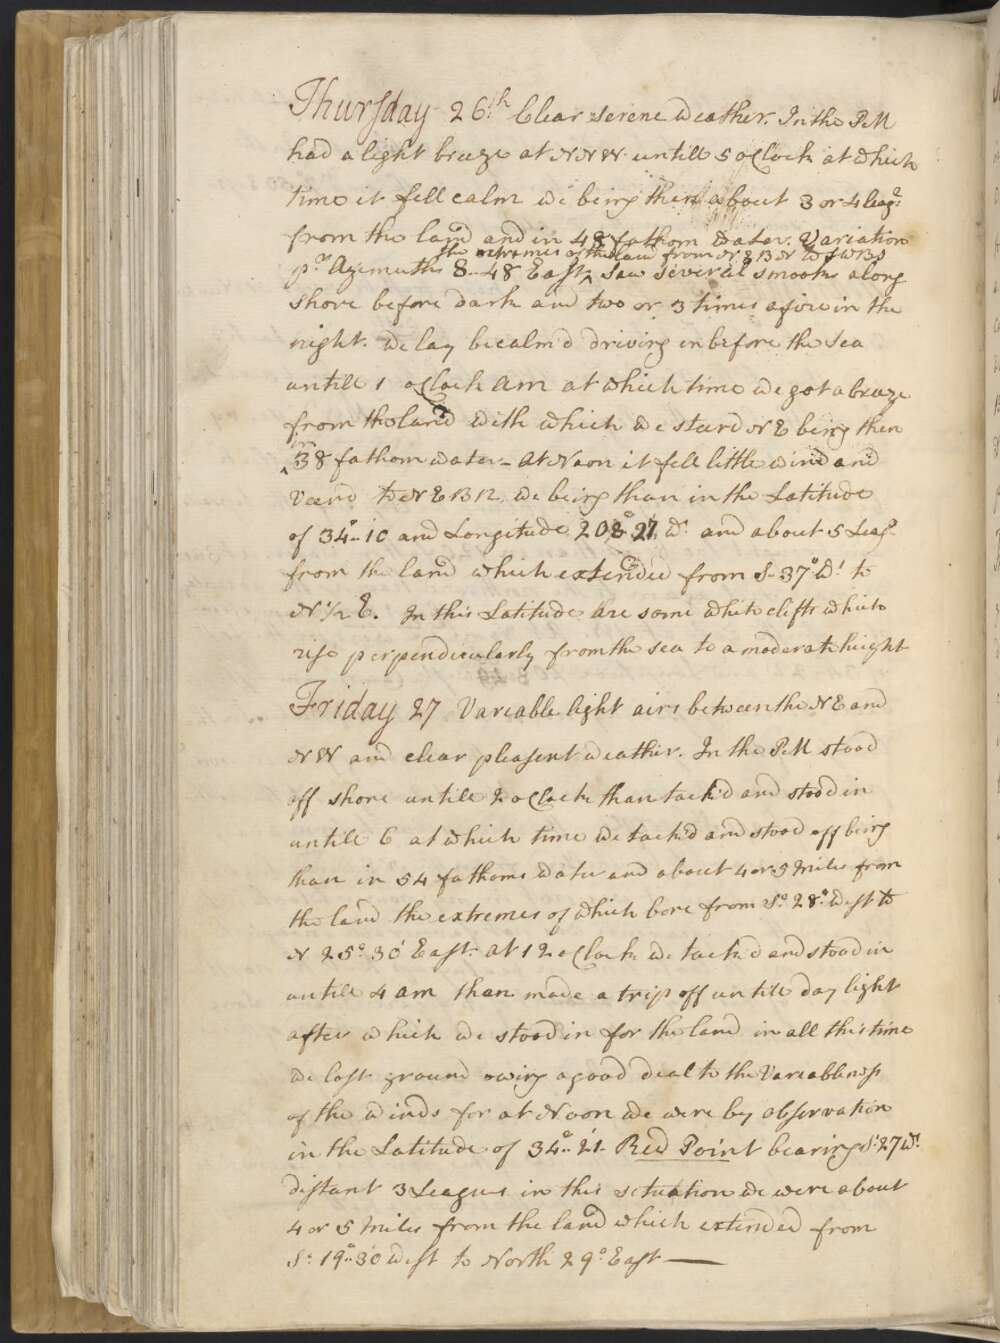 Thursday 26th. Clear serene weather. In the PM
had a light breeze at NNW untill 5 oClock at which
time it fell calm we being then about 3 or 4 Leags.
from the land and in 48 fathom water. Variation
the extremes of the land from NEBN to SWBS
pr. Azimuth 8..48 East ^ saw several smooks along
shore before dark and two or 3 times a fire in the
night. We lay becalm'd driving in before the Sea
untill 1 oClock AM at which time we got a breeze
from the land with which we steer'd NE being then
in
^ 38 fathom water_ At Noon it fell little wind and
veer'd to NEBN we being than in the Latitude
of 34°..10 and Longitude 208°..27 Wt. and about 5 Leags.
from the land which extended from S. 37° Wt. to
N ½ E. In this Latitude are some white clifts which
rise perpendicularly from the sea to a moderate height
Friday 27 Variable light airs between the NE and
NW and clear pleasent weather. In the PM stood
off shore untill 2 oClock than tack'd and stood in
untill 6 at which time we tack'd and stood off being
than in 54 fathoms water and about 4 or 5 Miles from
the land the extremes of which bore from So. 28°. West to
N 25°. 30' East. At 12 oClock we tack'd and stood in
untill 4 AM than made a trip off untill day light
after which we stood in for the land in all this time
we lost ground owing a good deal to the Variableness
of the winds for at Noon we were by observation
in the Latitude of 34°..21' Red Point bearing St. 27 Wt.
distant 3 Leagues in this situation we were about
4 or 5 Miles from the land which extended from
St. 19°..30 West to North 29° East —